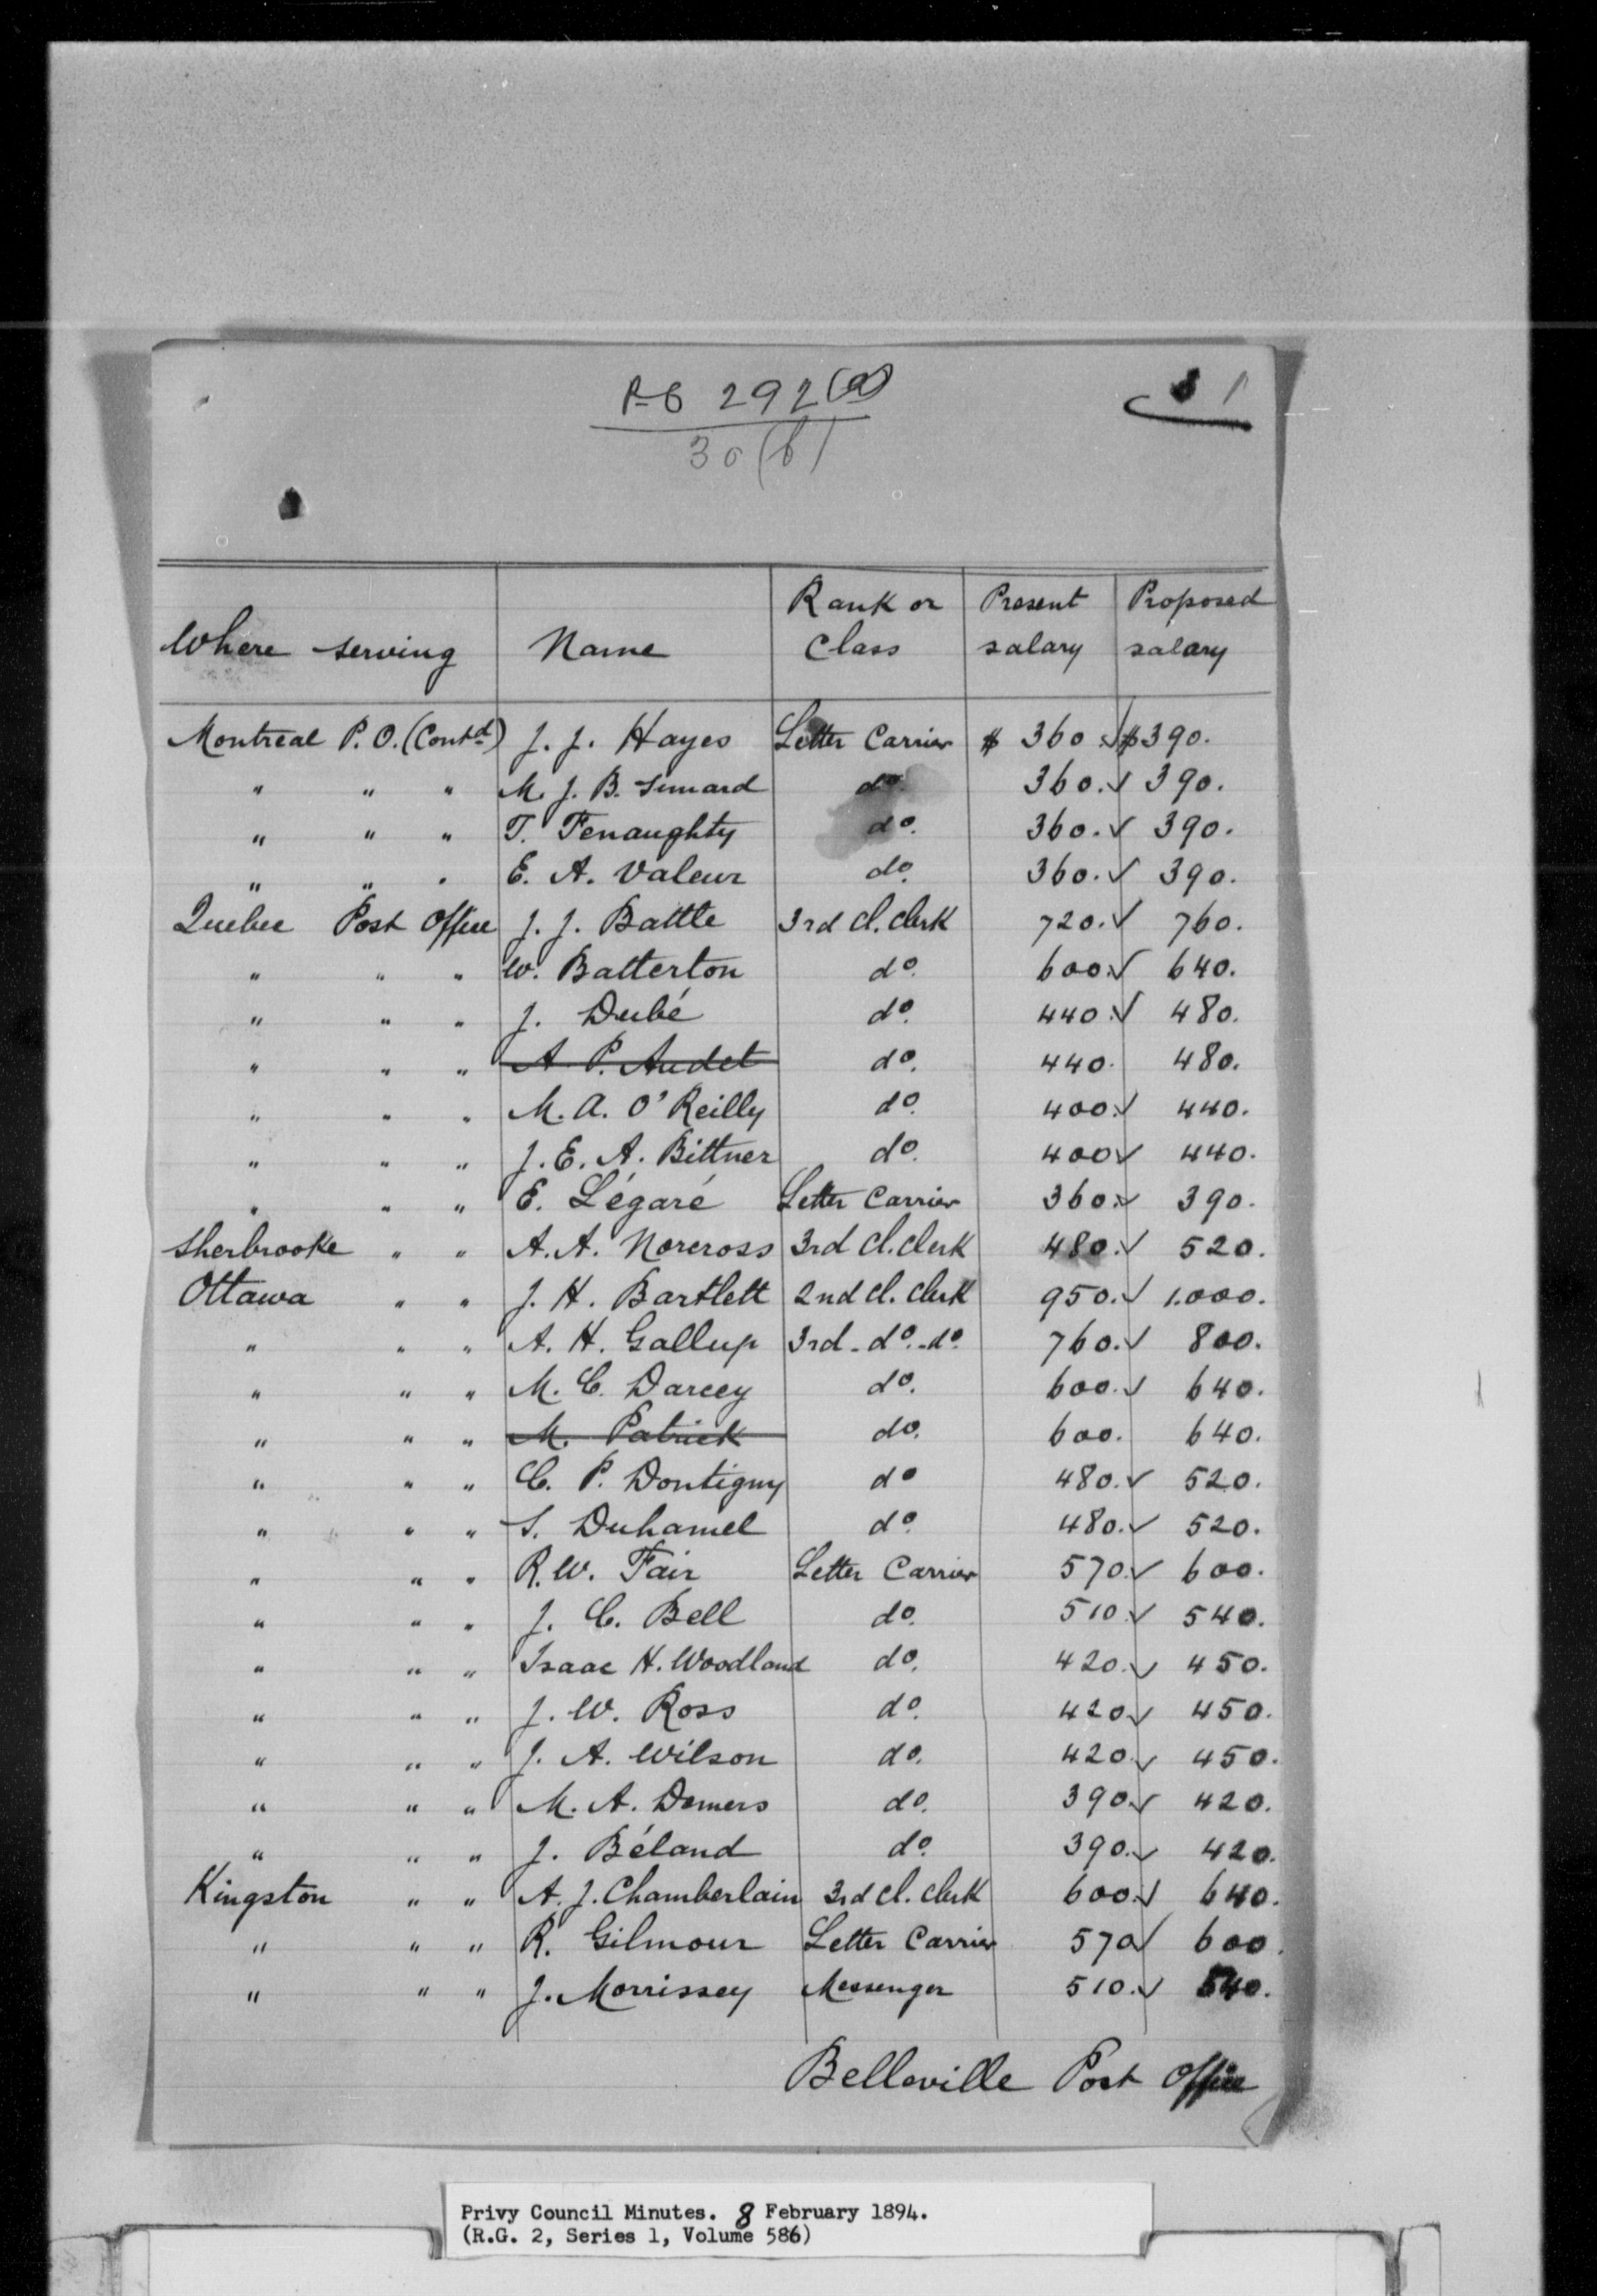 P-6 292(a)
30(b)
1
Rank or Present Proposed
Where serving Name Class salary salary
Montreal P. O. (Contd) J. J. Hayes Letter Carrier $ 360. ✓ $390.
" " " M. J. B. Simard do. 360. ✓ 390.
" " " T. Fenaughty do. 360. ✓ 390.
" " " E. A. Valeur do. 360. ✓ 390.
Quebec Post Office J. J. Battle 3rd Cl. Clerk 720. ✓ 760.
" " " W. Batterton do. 600. ✓ 640.
" " " J. Dubé do. 440. ✓ 480.
" " " A. P. Audet do. 440. 480.
" " " M. A. O'Reilly do. 400. ✓ 440.
" " " J. E. A. Bittner do. 400 ✓ 440.
" " " E. Légaré Letter Carrier 360. ✓ 390.
Sherbrooke " " A. A. Norcross 3rd Cl. Clerk 480. ✓ 520.
Ottawa " " J. H. Bartlett 2nd Cl. Clerk 950. ✓ 1.000.
" " " A. H. Gallup 3rd - do. - do. 760. ✓ 800.
" " " M. C. Darcey do. 600. ✓ 640.
" " " M. Patrick do. 600. 640.
" " " C. P. Dontigny do 480. ✓ 520.
" " " S. Duhamel do. 480. ✓ 520.
" " " R. W. Fair Letter Carrier 570. ✓ 600.
" " " J. C. Bell do. 510. ✓ 540.
" " " Isaac H. Woodland do. 420. ✓ 450.
" " " J. W. Ross do. 420. ✓ 450.
" " " J. A. Wilson do. 420. ✓ 450.
" " " M. A. Demers do. 390. ✓ 420.
" " " J. Béland do. 390. ✓ 420.
Kingston " " A. J. Chamberlain 3rd Cl. Clerk 600. ✓ 640.
" " " R. Gilmour Letter Carrier 570 ✓ 600.
" " " J. Morrissey Messenger 510. ✓ 540.
Belleville Post Office
Privy Council Minutes. 8 February 1894.
(R.G. 2, Series 1, Volume 586)